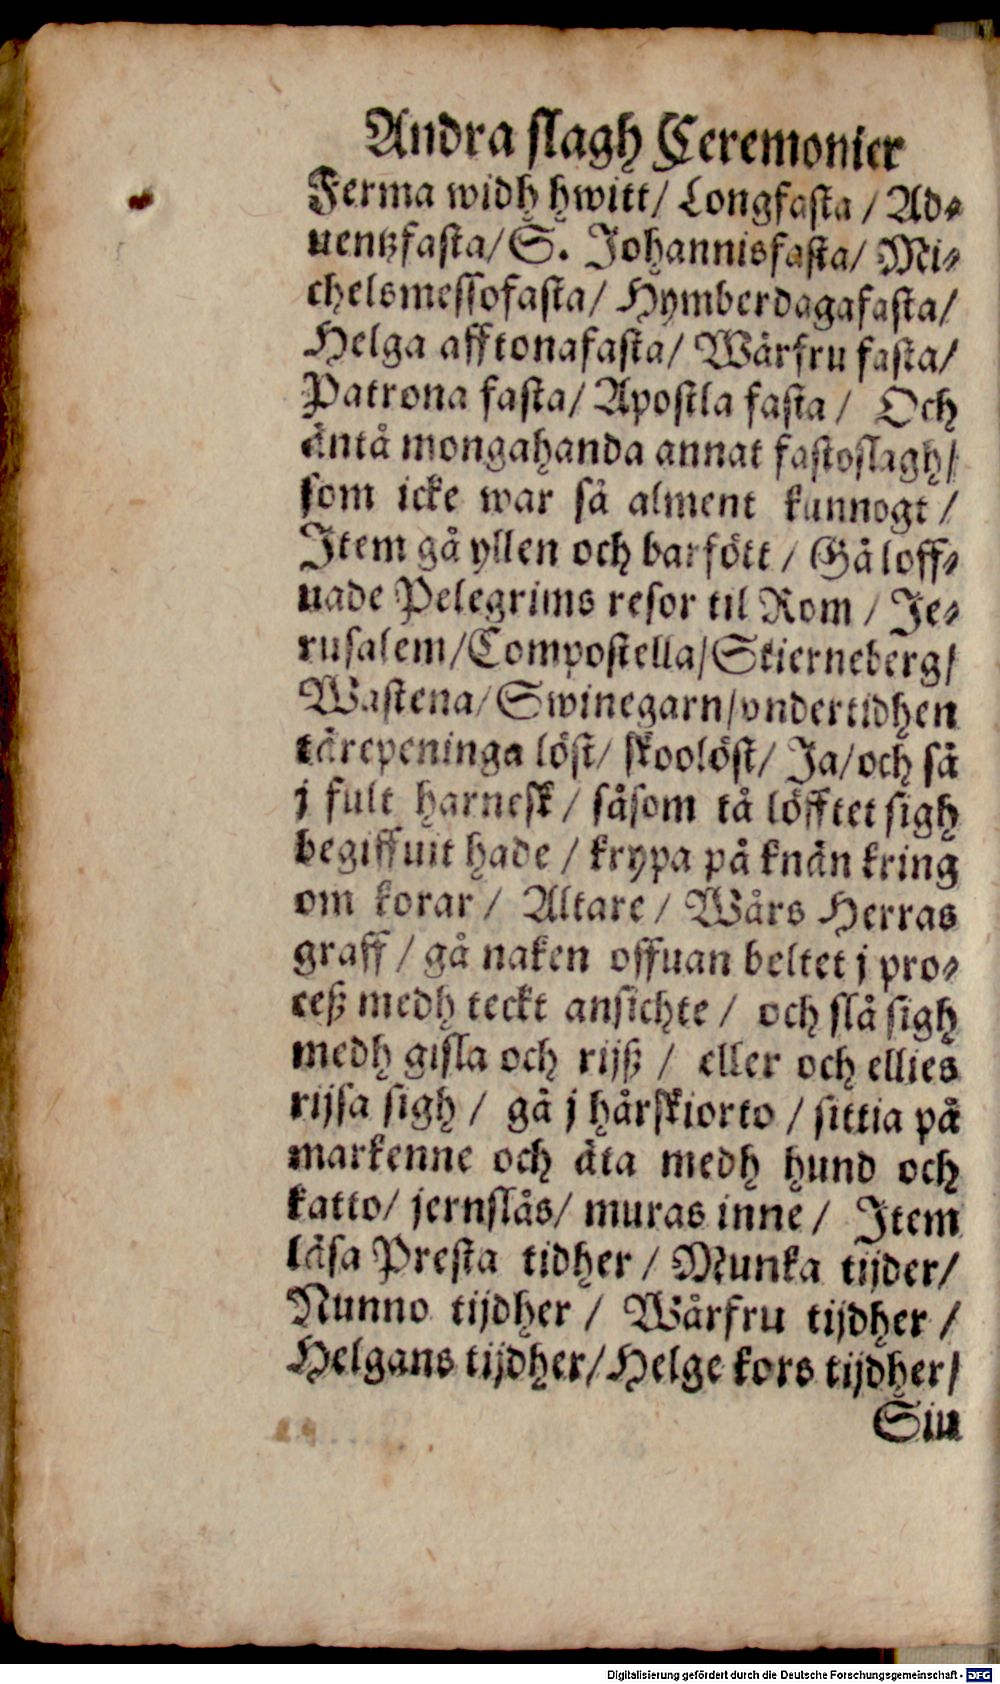 Andra slagh Ceremonier
Ferma widh hwitt/ Longfasta / Ad⸗
uentzfasta/ S. Johannisfasta/ Mi⸗
chelsmessofasta/ Hymberdagafasta/
Helga afftonafasta/ Wårfru fasta/
Patrona fasta/ Apostla fasta / Och
äntå mongahanda annat fastoslagh/
som icke war så alment kunnogt /
Item gå yllen och barfött / Gå loff⸗
uade Pelegrims resor til Rom / Je⸗
rusalem/Compostella/Skierneberg/
Wastena/ Swinegarn/vndertidhen
tärepeninga löst/ skoolöst/ Ja/och så
j fult harnesk / såsom tå löfftet sigh
begiffuit hade / krypa på knän kring
om korar / Altare / Wårs Herras
graff / gå naken offuan beltet j pro⸗
ceß medh teckt ansichte / och slå sigh
medh gisla och rijß / eller och ellies
rijsa sigh / gå j hårskiorto / sittia på
markenne och äta medh hund och
katto/ jernslås/ muras inne / Item
läsa Presta tidher / Munka tijder/
Nunno tijdher / Wårfru tijdher /
Helgans tijdher/Helge kors tijdher/
Siu
Digitalisierung gefördert durch die Deutsche Forschungsgemeinschaft - DFG